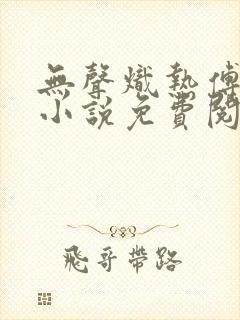 無聲熾熱傅
小說免費閱
飛哥帶路